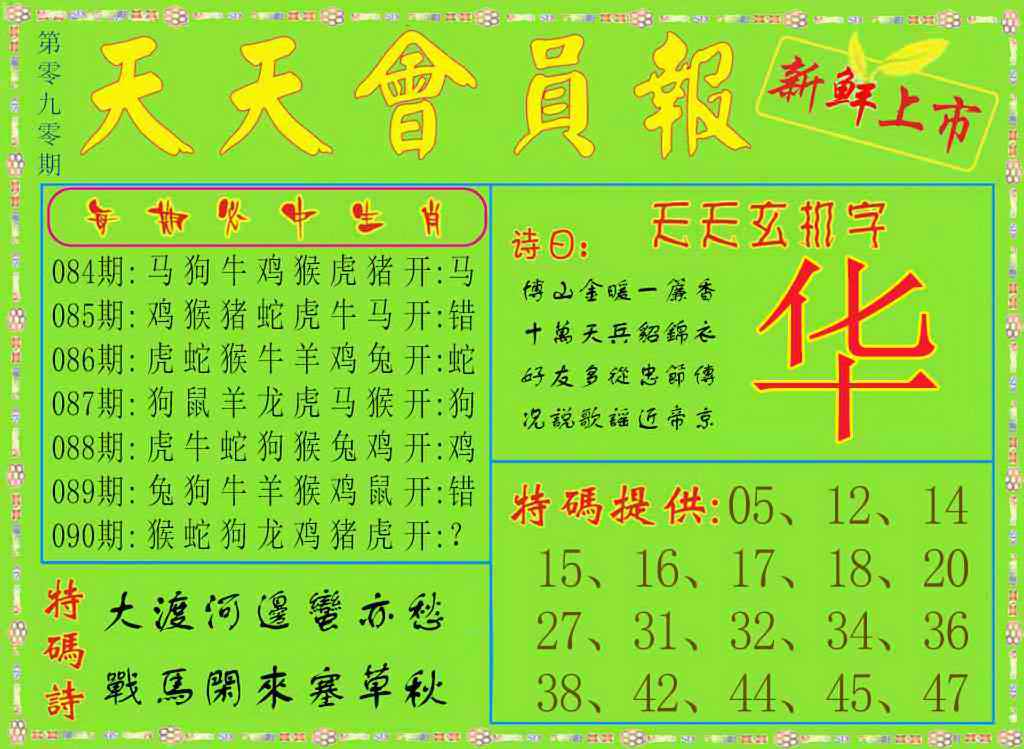 第零九零期
天天會員報
新鮮上市
每期必中生肖
084期: 马狗牛鸡猴虎猪 开:马
085期: 鸡猴猪蛇虎牛马 开:错
086期: 虎蛇猴牛羊鸡兔 开:蛇
087期: 狗鼠羊龙虎马猴 开:狗
088期: 虎牛蛇狗猴兔鸡 开:鸡
089期: 兔狗牛羊猴鸡鼠 开:错
090期: 猴蛇狗龙鸡猪虎 开:?
天天玄机字
诗曰:
博山金暖一簾香
十萬天兵貂錦衣
好友多從忠節傳
况説歌謡近帝京
华
特碼提供:05、12、14
15、16、17、18、20
27、31、32、34、36
38、42、44、45、47
特碼詩
大渡河邊蠻亦愁
戰馬閑來塞草秋